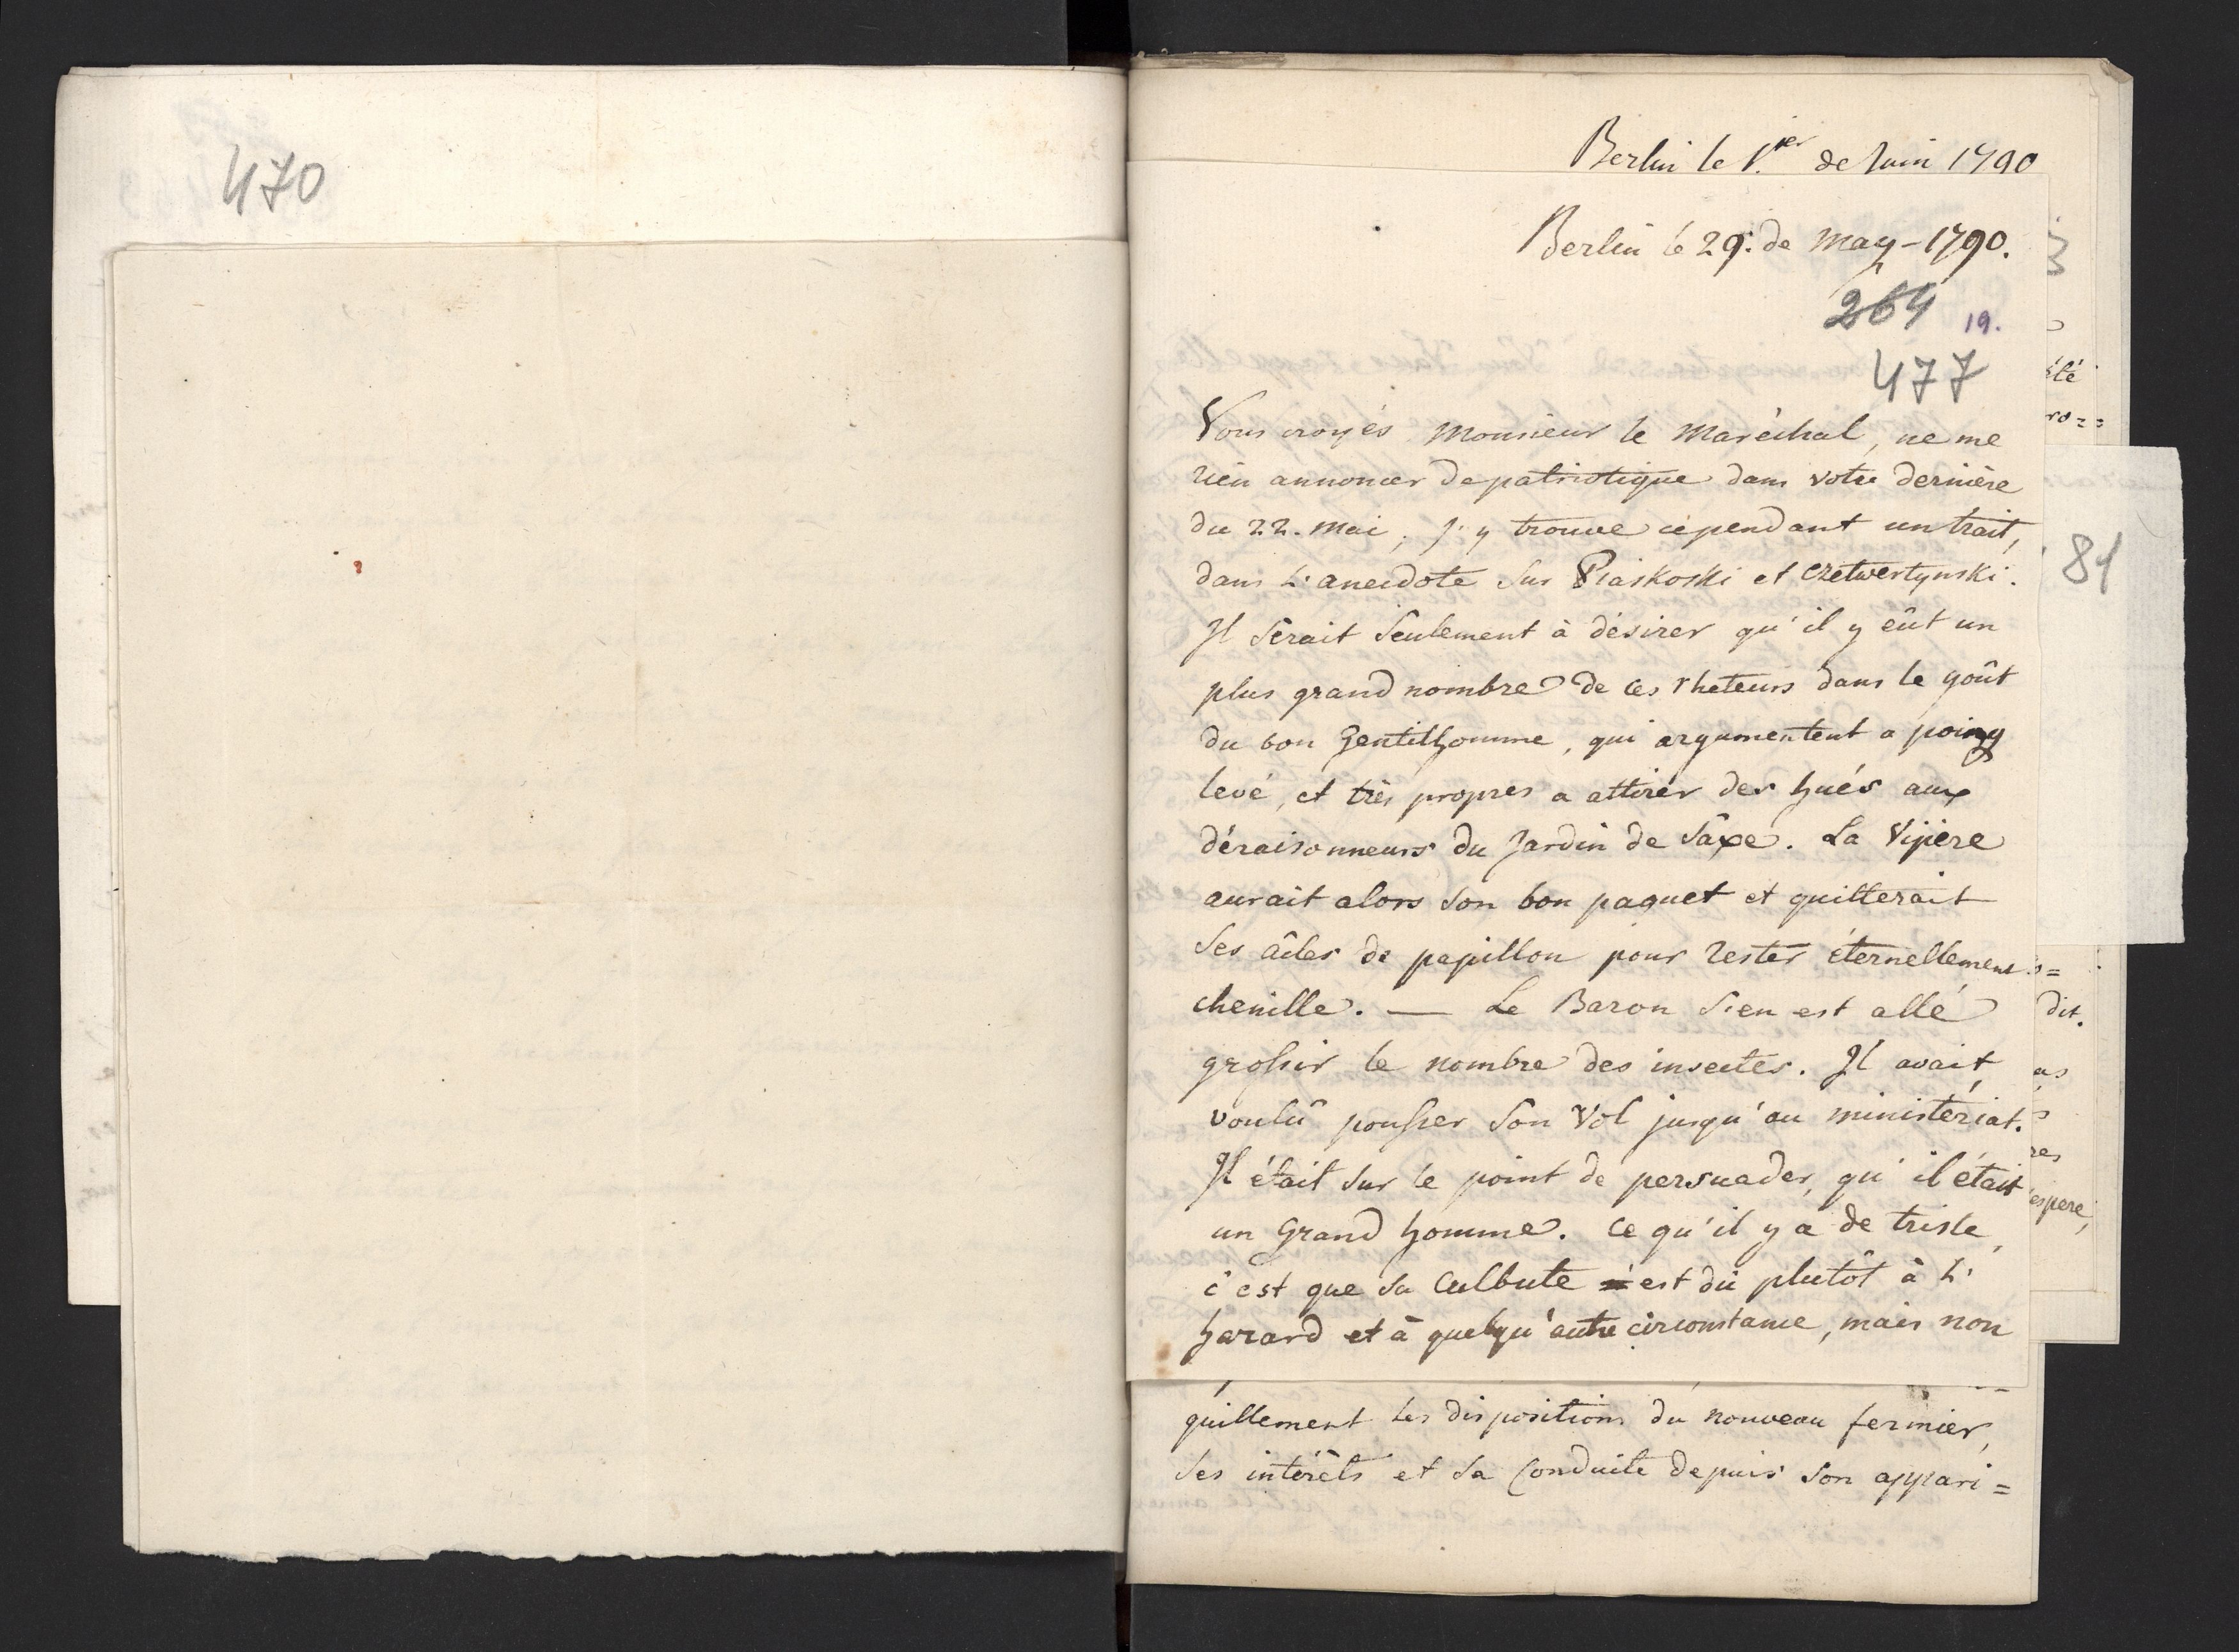 470
Berlin le 1.ier de Juin 1790
Berlin le 29. de May - 1790.
264 19.
477
Vous croyés Monsieur le Maréchal, ne me
rien annoncer de patriotique dans votre dernière
du 22. Mai, j'y trouve cependant un trait,
dans L'anecdote sur Piaskoski et Czetwertynski.
Il sérait seulement à désirer qu'il y eût un
plus grand nombre de ces rheteurs dans le goût
du bon Gentilhomme, qui argumentent a poing
levé, et très propres a attirer des hués aux
déraisonneurs du Jardin de Sâxe. La Vipère
aurait alors son bon paquet et quitterait
ses âiles de papillon pour rester éternellement
chenille. — Le Baron s'en est allé
grossir le nombre des insectes. Il avait
voulû pousser son Vol jusqu'au ministèriat.
Il était sur le point de persuader, qu'il était
un Grand homme. Ce qu'il y a de triste,
c'est que sa Culbute est dû plutôt à L'
hazard et à quelqu'autre circonstance, mais non
quillement les dispositions du nouveau fermier,
ses intérêts et sa Conduite depuis son appari=
été
ro=
81
dit.
as
res
espere,